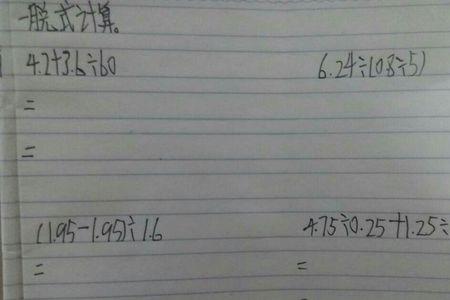 一脱式计算。
4.2+3.6÷60
6.24÷(0.8÷5)
=
=
(1.95-1.95)÷1.6
4.75÷0.25+1.25÷
=
=